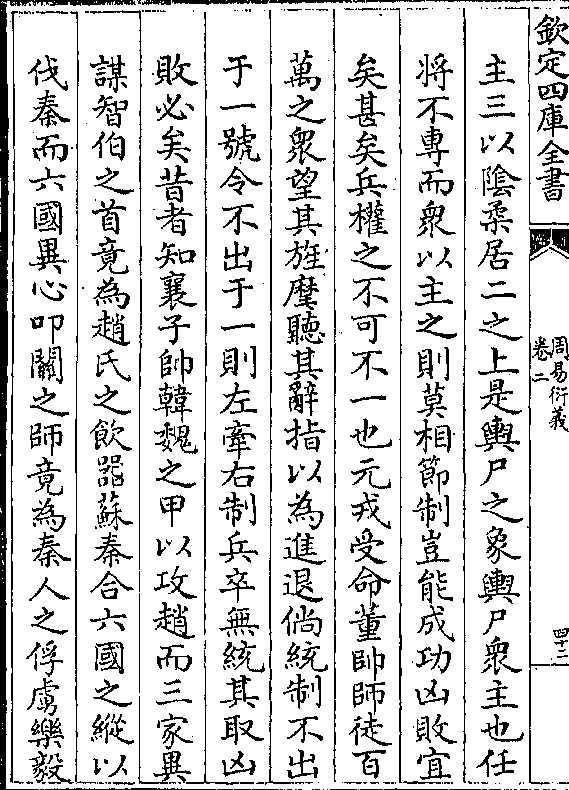 欽定四庫全書
周易衍義
卷二
四十二
主三以陰柔居二之上是輿尸之象輿尸衆主也任
将不專而衆以主之則莫相節制豈能成功凶敗宜
矣甚矣兵權之不可不一也元戎受命董帥師徒百
萬之衆望其旌麾聽其辭指以為進退倘統制不出
于一號令不出于一則左牽右制兵卒無統其取凶
敗必矣昔者知襄子帥韓魏之甲以攻趙而三家異
謀智伯之首竟為趙氏之飲器蘇秦合六國之縱以
伐秦而六國異心叩關之師竟為秦人之俘虜樂毅